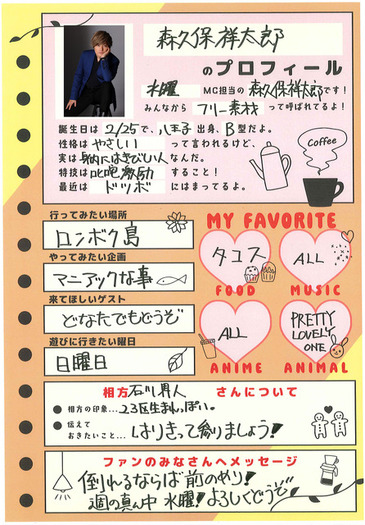 森久保祥太郎
のプロフィール
水曜 MC担当の 森久保祥太郎です!
みんなから フリー素材 って呼ばれてるよ!
誕生日は 2/25で、八王子 出身、B型だよ。
性格は やさしい って言われるけど、
実は 身内にはきびしい人 なんだ。
特技は 叱咤激励 すること!
最近は ドツボ にはまってるよ。
Coffee
行ってみたい場所
ロンボク島
やってみたい企画
マニアックな事
来てほしいゲスト
どなたでもどうぞ
遊びに行きたい曜日
日曜日
MY FAVORITE
タコス
FOOD
ALL
MUSIC
ALL
ANIME
PRETTY
LOVELY
ONE
ANIMAL
相方 石川界人 さんについて
●相方の印象… 23区生まれっぽい。
●伝えて
おきたいこと… はりきって参りましょう!
ファンのみなさんへメッセージ
倒れるならば前のめり!
週の真ん中 水曜! よろしくどうぞ